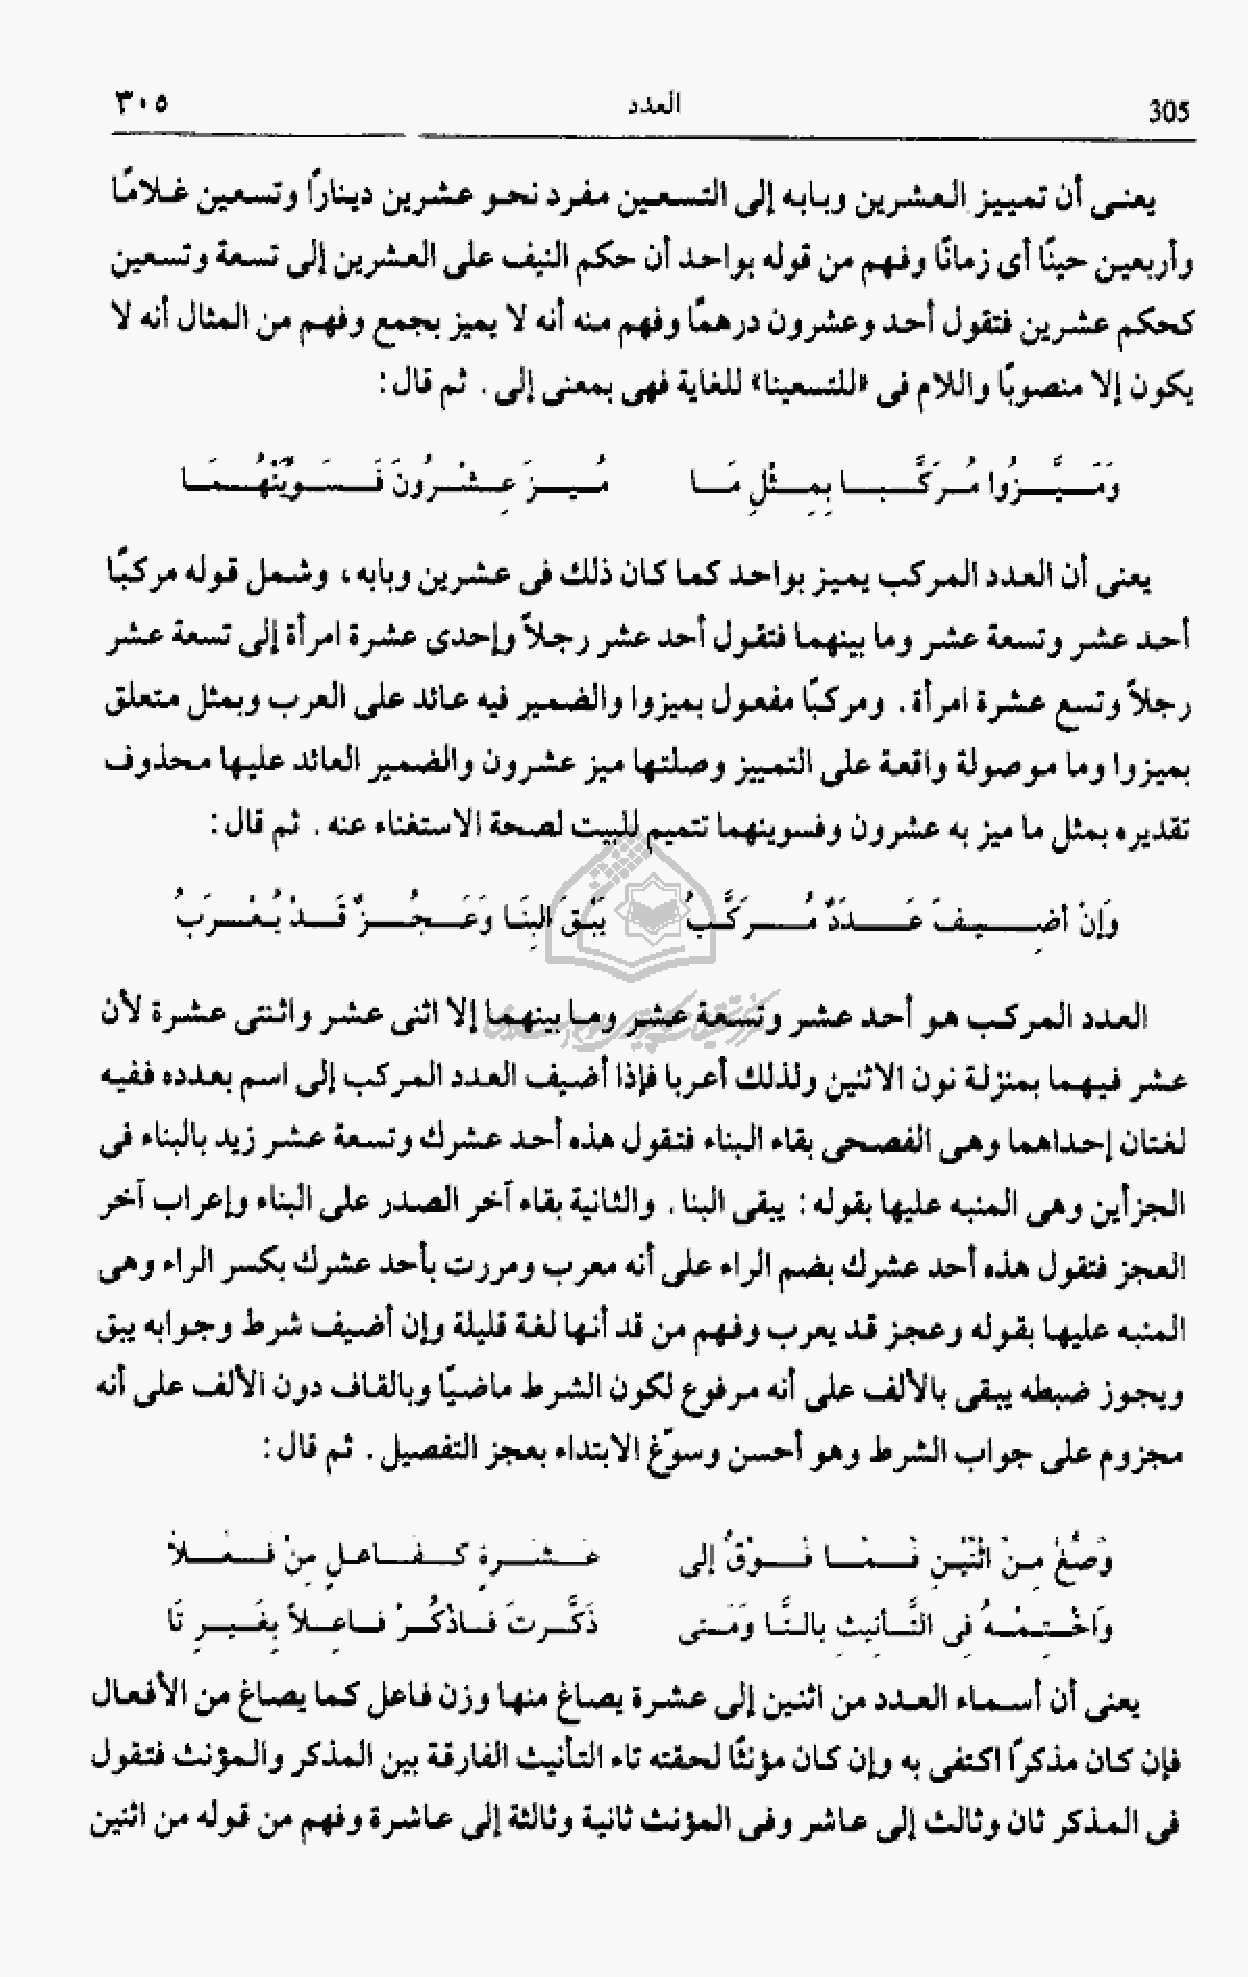 305 العدد ٣٠٥
يعنى أن تمييز العشرين وبابه إلى التسعين مفرد نحو عشرين ديناراً وتسعين غلامًا
وأربعين حينًا أى زمانًا وفهم من قوله بواحد أن حكم النيف على العشرين إلى تسعة وتسعين
كحكم عشرين فتقول أحد وعشرون درهمًا وفهم منه أنه لا يميز بجمع وفهم من المثال أنه لا
يكون إلا منصوبًا واللام فى «للتسعينا» للغاية فهى بمعنى إلى . ثم قال :
وَمَيَّزُوا مُرَكَّبا بِمِثْلِ مَا مُيِّزَ عِشْرُونَ فَسَوِّيَنْهُمَا
يعنى أن العدد المركب يميز بواحد كما كان ذلك فى عشرين وبابه ، وشمل قوله مركبًا
أحد عشر وتسعة عشر وما بينهما فتقول أحد عشر رجلاً وإحدى عشرة امرأة إلى تسعة عشر
رجلاً وتسع عشرة امرأة. ومركبًا مفعول بميزوا والضمير فيه عائد على العرب وبمثل متعلق
بميزوا وما موصولة واقعة على التمييز وصلتها ميز عشرون والضمير العائد عليها محذوف
تقديره بمثل ما ميز به عشرون وفسوينهما تتميم للبيت لصحة الاستغناء عنه . ثم قال :
وَإِنْ أُضِيفَ عَدَدٌ مُرَكَّبُ يَبْقَ البِنَا وَعَجُزٌ قَدْ يُعْرَبُ
العدد المركب هو أحد عشر وتسعة عشر وما بينهما إلا اثنى عشر واثنتى عشرة لأن
عشر فيهما بمنزلة نون الاثنين ولذلك أعربا فإذا أضيف العدد المركب إلى اسم بعده ففيه
لغتان إحداهما وهى الفصحى بقاء البناء فتقول هذه أحد عشرك وتسعة عشر زيد بالبناء فى
الجزأين وهى المنبه عليها بقوله : يبقى البنا . والثانية بقاء آخر الصدر على البناء وإعراب آخر
العجز فتقول هذه أحد عشرك بضم الراء على أنه معرب ومررت بأحد عشرك بكسر الراء وهى
المنبه عليها بقوله وعجز قد يعرب وفهم من قد أنها لغة قليلة وإن أضيف شرط وجوابه يبق
ويجوز ضبطه يبقى بالألف على أنه مرفوع لكون الشرط ماضيًا وبالقاف دون الألف على أنه
مجزوم على جواب الشرط وهو أحسن وسوّغ الابتداء بعجز التفصيل . ثم قال :
وَصُغْ مِنْ اثْنَيْنِ فَمَا فَوْقُ إلى عَشَرةٍ كَفَاعلٍ مِنْ فَعَلاَ
وَاخْتِمْهُ فِى التَّأنيثِ بِالتَّا وَمَتى ذَكَّرتَ فَاذْكُرْ فَاعِلاً بِغَيرِ تَا
يعنى أن أسماء العدد من اثنين إلى عشرة يصاغ منها وزن فاعل كما يصاغ من الأفعال
فإن كان مذكراً اكتفى به وإن كان مؤنثًا لحقته تاء التأنيث الفارقة بين المذكر والمؤنث فتقول
فى المذكر ثان وثالث إلى عاشر وفى المؤنث ثانية وثالثة إلى عاشرة وفهم من قوله من اثنين